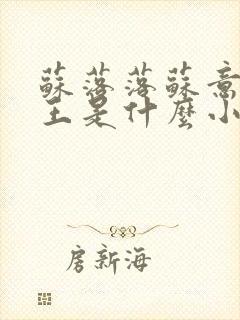 蘇落落蘇意
王是什麼小
房新海